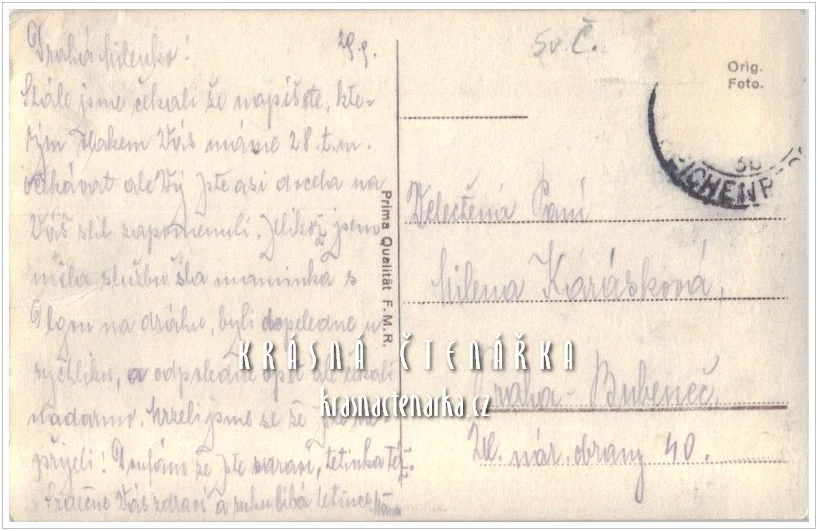 Drahá Milenko! 29.9.
Stále jsme čekali že napíšete, kte-
rým vlakem Vás máme 28. t.m.
očkávat ale Vy jste asi docela na
Váš slib zapomenuli. Jelikož jsem
měla službu šla maminka s
Olgou na dráhu, byli dopoledne u
rychlíku, a odpoledne opět ale čekali
nadarmo. Mrzeli jsme se že jste ne-
přijeli! Doufám že jste zdraví, tetinka též.
Srdečně Vás zdraví a ruku líbá tetince
Prima Qualität F. M. R.
Sv. Č.
Orig.
Foto.
38
REICHENB
Velectěná Paní
Milena Karásková,
Praha-Bubeneč.
Tř. nár. obrany 40.
KRÁSNÁ ČTENÁŘKA
krasnactenarka.cz